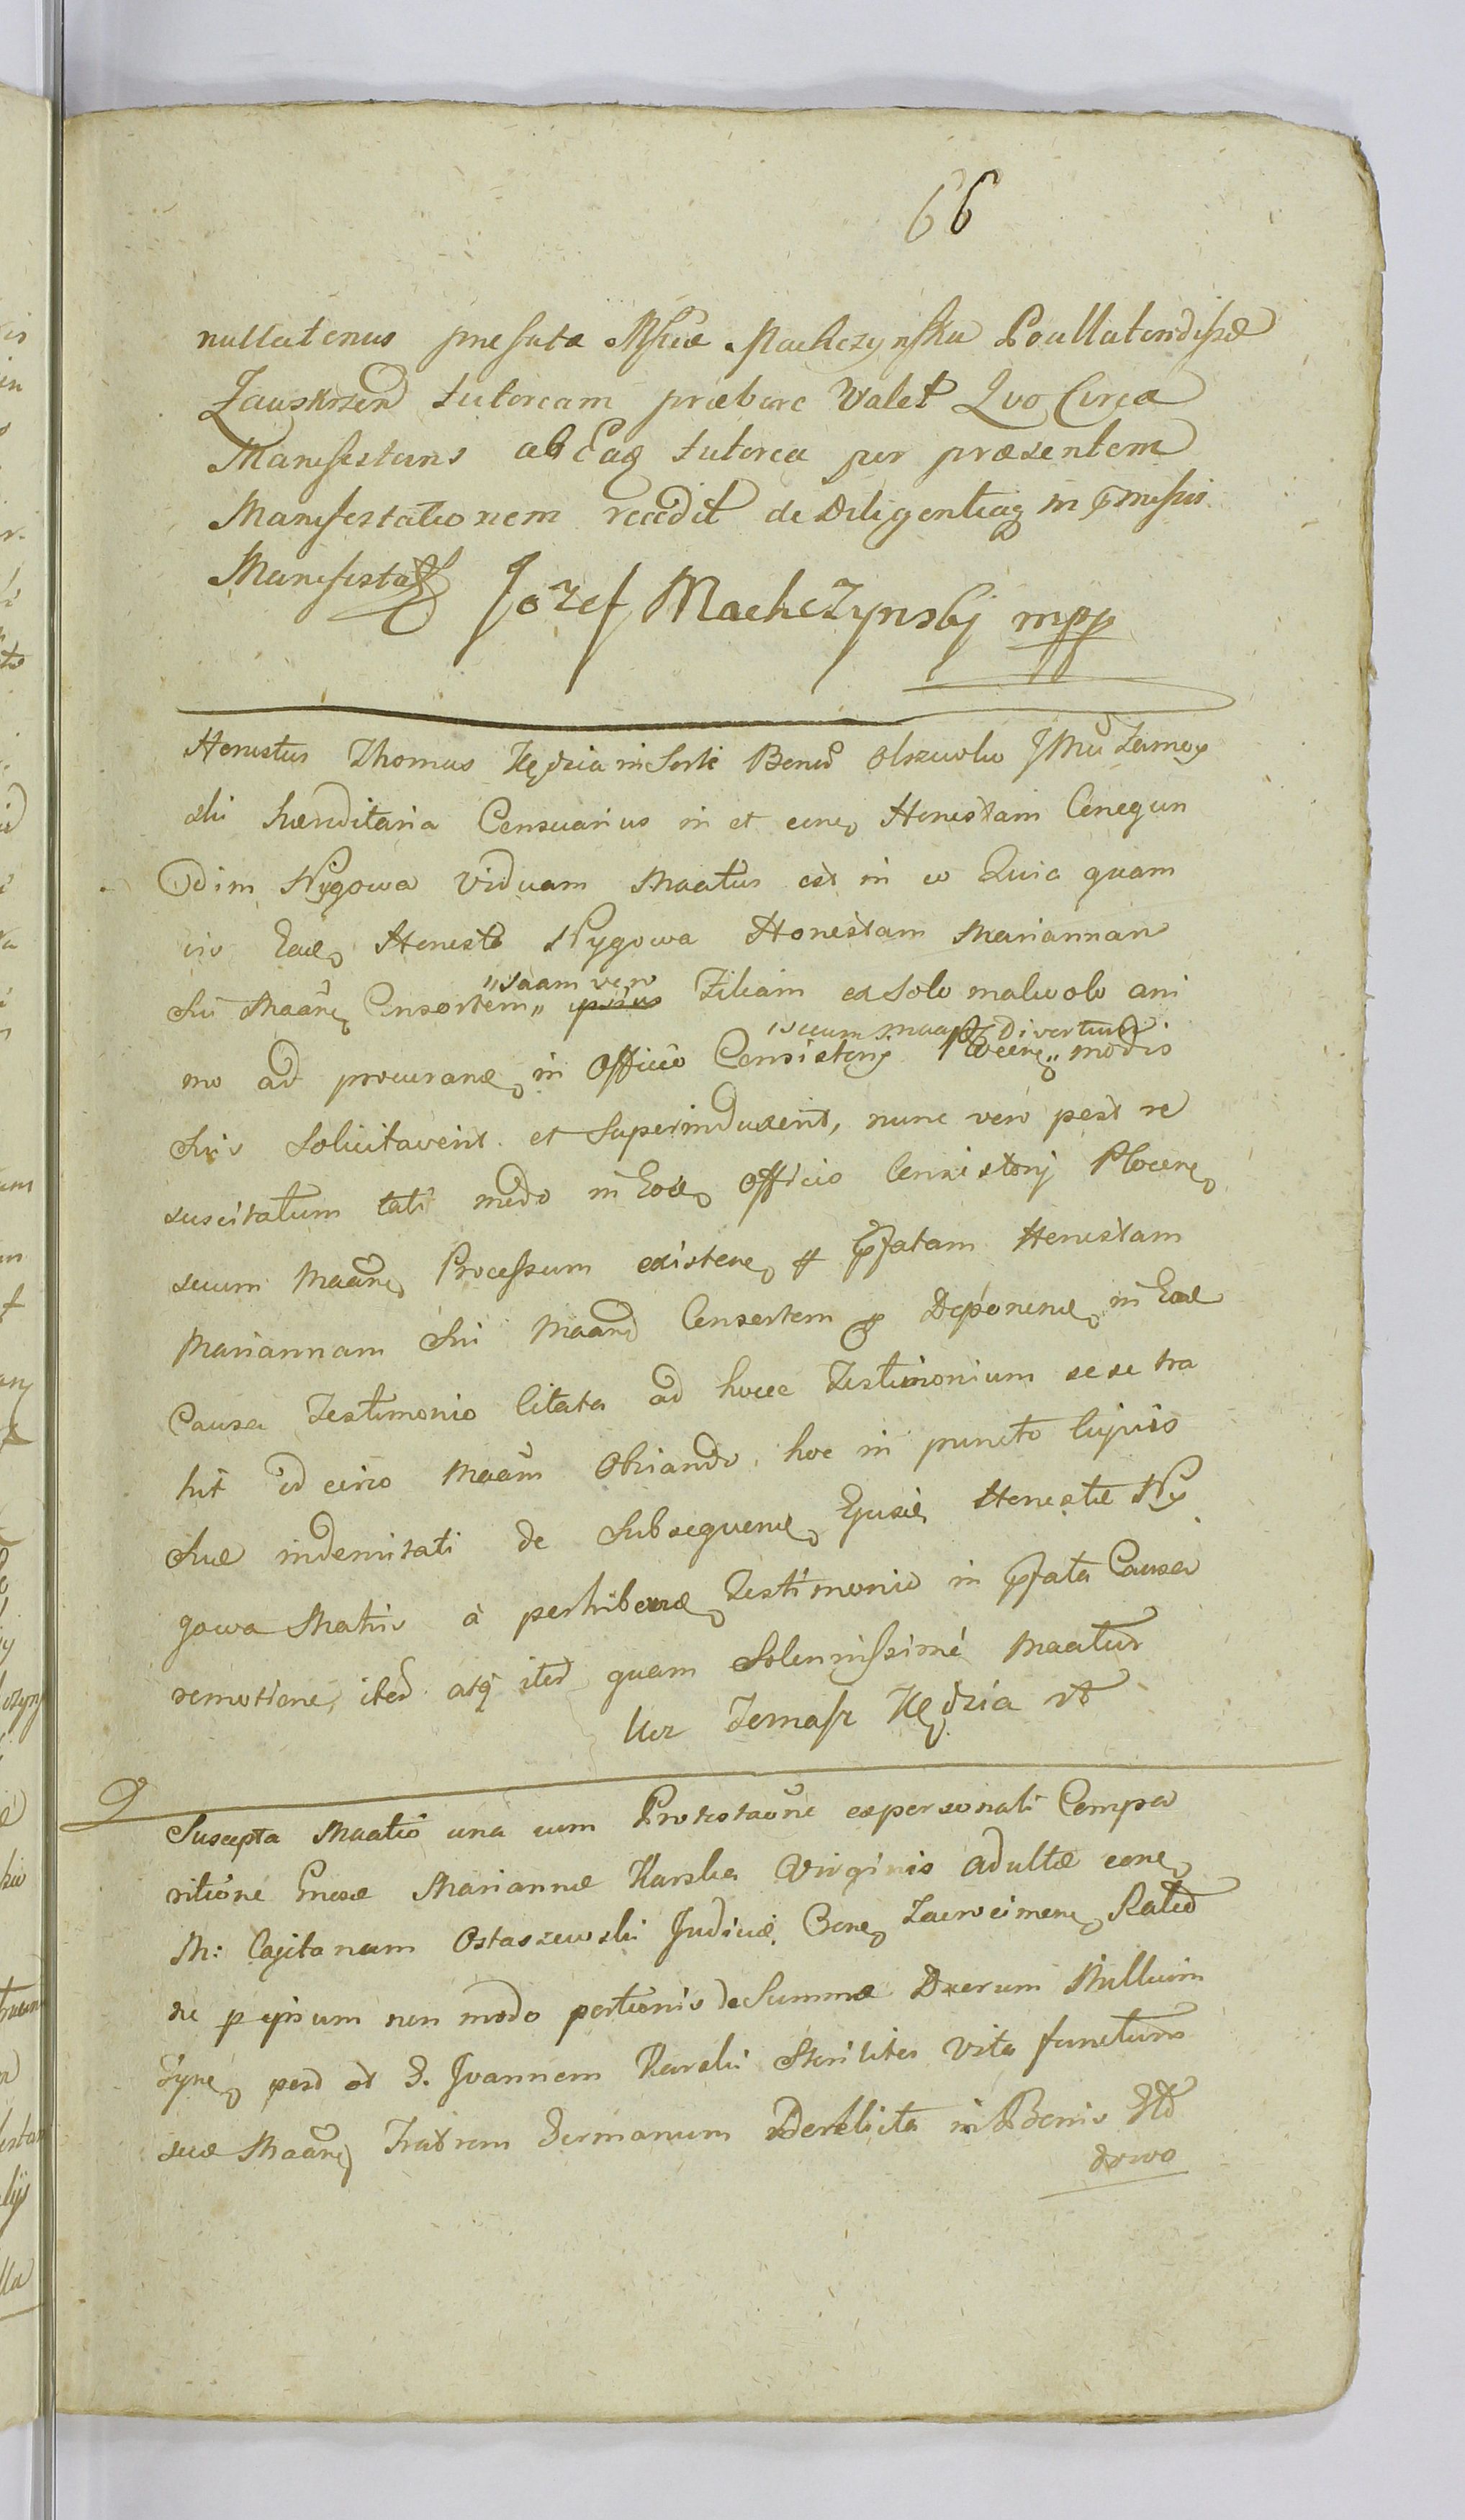 66
nullatenus prefata Mfica Machczynska Poullatondissæ
Zauskrzend tutoream præbere Valet Quo Circa
Manifestans ab Eaq tutorea per præsentem
Manifestationem recedit de Diligentiaq in pmissis
Manifesta
Jozef MachcZynskj mpp
Honestus Thomas Kędzia in Sorte Bonor Olszewko JMci Zamoy
ski hæreditaria Censuarius in et cone Honestam Cunegun
dim Nygowa Viduam Maatur est in eo Quia quam
vis Ead Honesta Nygowa Honestam Mariannam
Sui Maane Consortem „ ipsius Filiam ex Solo malevolo ani
„suam vero
mo ad procurand in Officio Consistorij Plocene „ modis
secum Divortium
Suis Solicitaverit et Superinduxerit, nunc vero post re
suscitatum tali modo in Eod Officio Consistorij Plocene
secum Maane Processum existene pfatam Honestam
Mariannam Sui Maand Consortem Deponend in Ead
Causa Testimonio Citata ad hocce Testimonium sese tra
hit id circo Maans Obviando hoc in puncto Cujuis
Suæ indemnitati de Subsequend Ejusd Honestæ Ny
gowa Matris à perhibend Testimonio in pfata Causa
remotione, iterd atq iterd quam Solennissimé Maatur
Uez Tomasz Kędzia
Suscepta Maatio una cum Protestaone expersonali Compa
ritione Gnosæ Mariannæ Karska Virginis adultæ cone
M: Cajetanum Ostaszewski Judicé Cone Zacroeimene Rated
ne p ipsum non modo portionis de Summa Duorum Millium
Tyne perd ot G. Joannem Karski Steriliter Vita functum
suæ Maane Fratrem Germanum Derelicta in Bonis Gło
dowo